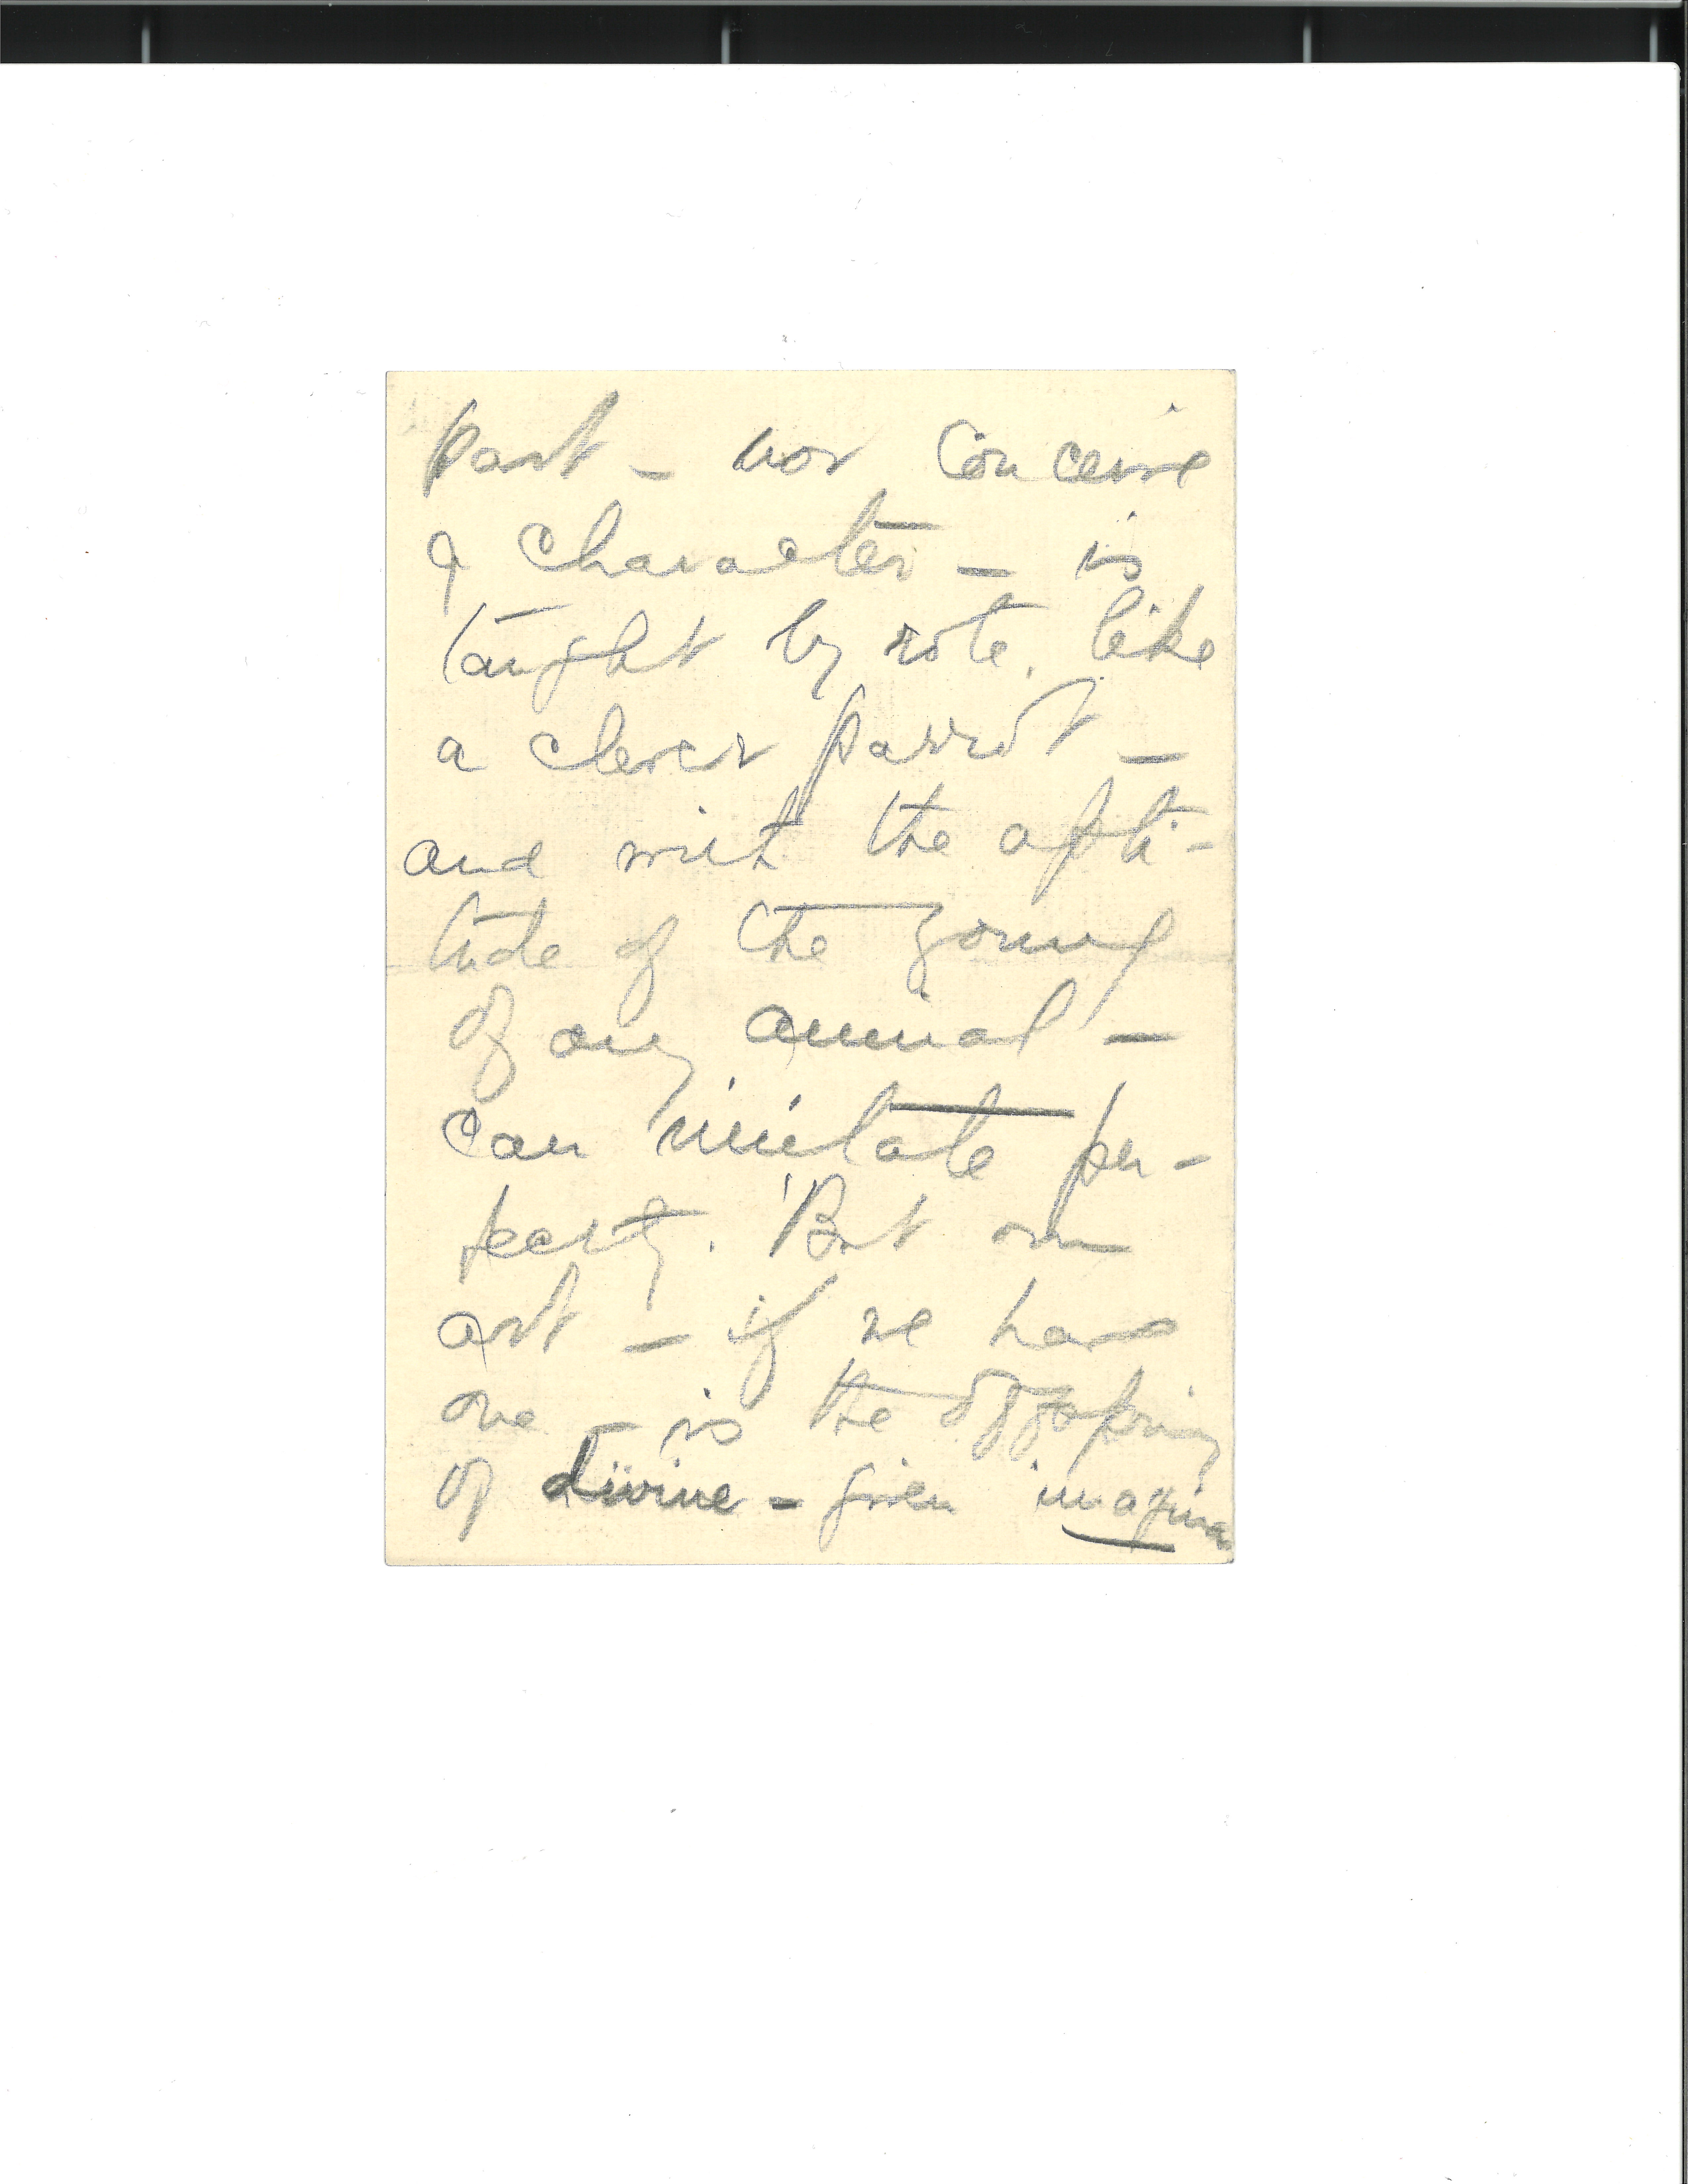 part – nor conceive
a character – is
taught by rote, like
a clever parrot –
and with the apti-
tude of the young
of any animal –
can imitate per-
fectly. But our
art – if we have
one – is the offspring
of divine-given imagina